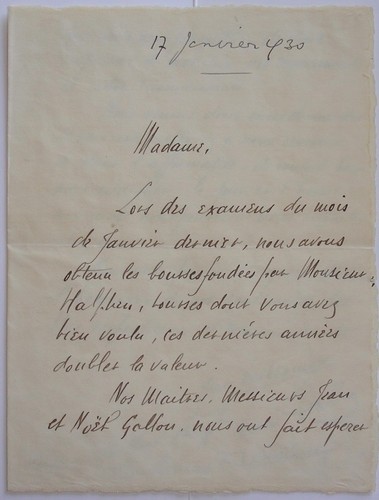 17 Janvier 1930
Madame,
Lors des examens du mois
de Janvier dernier, nous avons
obtenu les bourses fondées par Monsieur
Halphen, bourses dont vous avez
bien voulu, ces dernières années
doubler la valeur.
Nos Maîtres, Messieurs Jean
et Noël Gallon, nous ont fait espérer